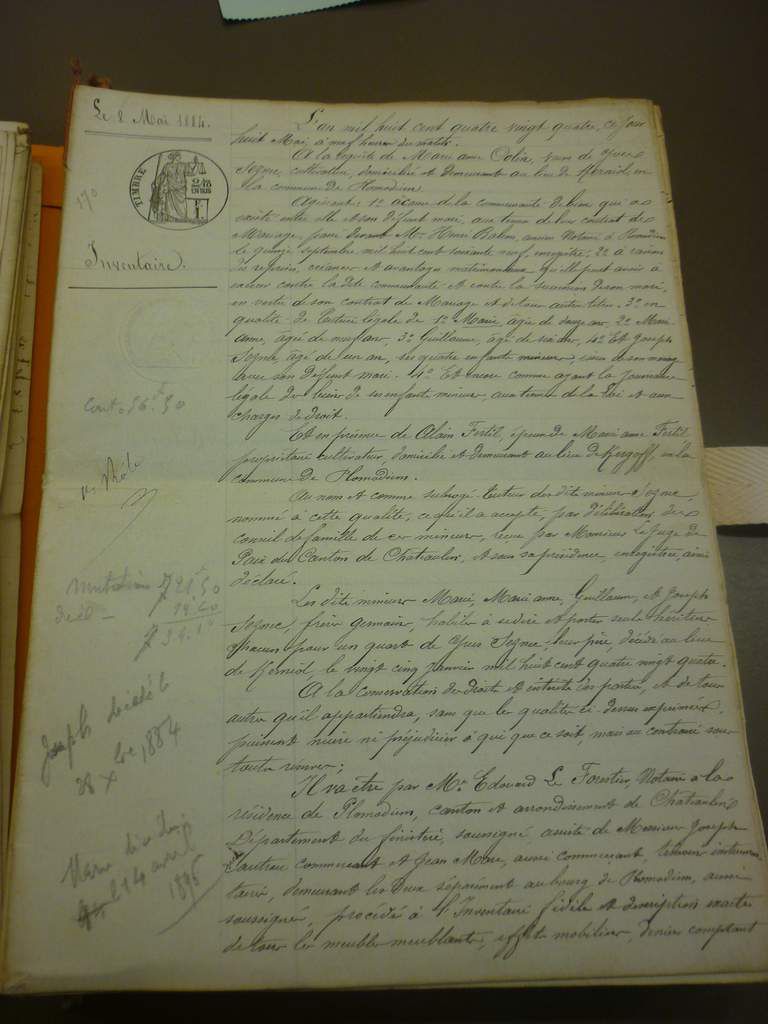 Le 8 Mai 1884.
170
TIMBRE
Inventaire.
L'an mil huit cent quatre vingt quatre, ce jour
huit Mai, à heures du matin.
A la requête de Marie anne Colin, veuve de Yves
cultivatrice, domiciliée et demeurant au lieu de en
la commune de Plomodiern
Agissant: 1° à cause de la communauté de biens qui a
existé entre elle et son défunt mari, aux termes de leur contrat de
Mariage, passé devant Me Henri ancien Notaire à Plomodiern
le quinze septembre mil huit cent soixante neuf, enregistré; 2° à raison
des reprises, créances et avantages matrimoniaux qu'elle peut avoir à
exercer contre la dite communauté et contre la succession de son mari,
en vertu de son contrat de Mariage et de tous autres titres. 3° en
qualité de tutrice légale de 1° Marie, âgée de douze ans, 2° Marie
anne, âgée de neuf ans, 3° Guillaume, âgé de six ans, 4° Et Joseph
âgé de un an, ses quatre enfants mineurs, issus de son mariage
avec son défunt mari. 4° Et encore comme ayant la jouissance
légale des biens de ses enfants mineurs, aux termes de la loi et aux
charges de droit.
Et en présence de Alain Fertil, époux de Marie anne Fertil
propriétaire cultivateur, domicilié et demeurant au lieu de Kergoff, en la
commune de Plomodiern.
Au nom et comme subrogé tuteur des dits mineurs
nommé à cette qualité, ce qu'il a accepté, par délibération du
conseil de famille de ces mineurs, tenu par Monsieur Le Juge de
Paix du Canton de Chateaulin, et sous sa présidence, enregistrée, ainsi
déclaré.
Les dits mineurs Marie, Marie anne, Guillaume, et Joseph
frères germains, habiles à se dire et porter seuls héritiers
chacun pour un quart de Yves leur père, décédé au lieu
de le vingt cinq Janvier mil huit cent quatre vingt quatre.
A la conservation des droits et intérêts des parties, et de tous
autres qu'il appartiendra, sans que les qualités ci-dessus exprimées
puissent nuire ni préjudicier à qui que ce soit, mais au contraire sous
toutes réserves;
Il va être par Me Edouard Le Forestier, Notaire à la
résidence de Plomodiern, canton et arrondissement de Chateaulin
Département du finistère, soussigné, assisté de Messieurs Joseph
commerçant et Jean Marc, aussi commerçant, témoins instrumen
taires, demeurant les deux séparément au bourg de Plomodiern, aussi
soussignés, procédé à l'Inventaire fidèle et description exacte
de tous les meubles meublants, effets mobiliers, deniers comptant
mutation 21.50
Joseph décédé le
28 Xbre 1884
14 avril
1895